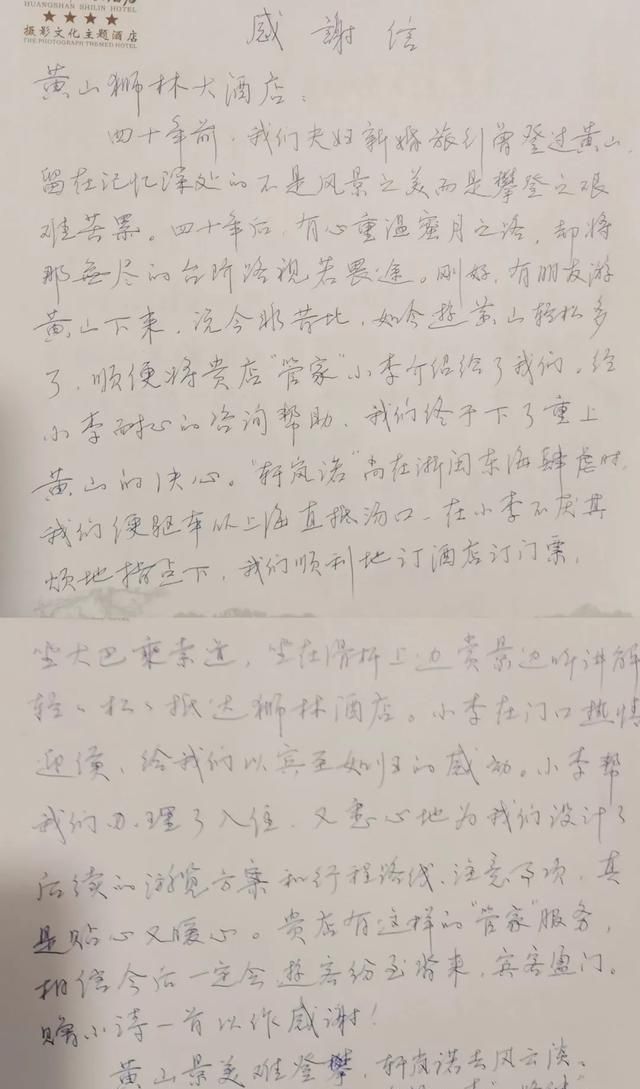 HUANGSHAN SHILIN HOTEL
摄影文化主题酒店
THE PHOTOGRAPH THEMED HOTEL
感謝信
黄山狮林大酒店：
四十年前，我们夫妇新婚旅行曾登过黄山，
留在记忆深处的不是风景之美而是攀登之艰
难苦累。四十年后，有心重温蜜月之路，却将
那無尽的台阶路视若畏途。刚好，有朋友游
黄山下来，说今非昔比，如今游黄山轻松多
了，顺便将贵店“管家”小李介绍给了我们。经
小李耐心的咨询帮助，我们终于下了重上
黄山的决心。“轩岚诺”尚在浙闽东海肆虐时，
我们便驱车从上海直抵汤口，在小李不厌其
烦地指点下，我们顺利地订酒店订门票，
坐大巴乘索道，坐在滑杆上边赏景边听讲解
轻轻松松抵达狮林酒店。小李在门口热情
迎候，给我们以宾至如归的感动。小李帮
我们办理了入住，又悉心地为我们设计了
后续的游览方案和行程路线、注意事项，真
是贴心又暖心。贵店有这样的“管家”服务，
相信今后一定会游客纷至沓来，宾客盈门。
赠小诗一首以作感谢！
黄山景美难登攀，轩岚诺去风云淡。